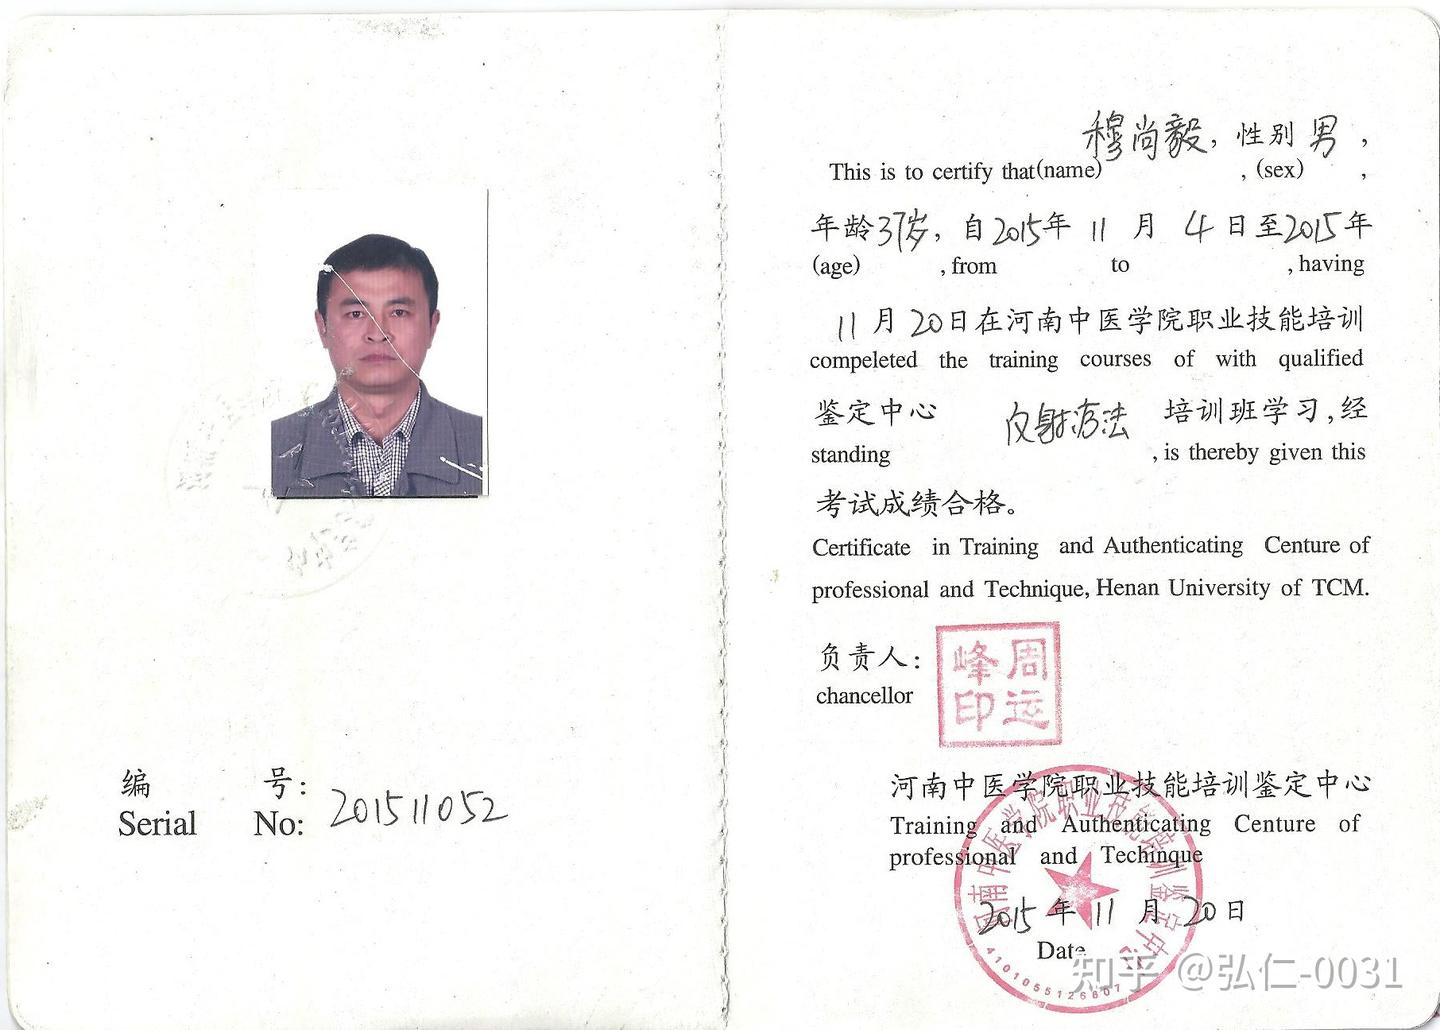 编 号:
Serial No: 201511052
穆尚毅, 性别 男,
This is to certify that(name) , (sex) ,
年龄37岁, 自2015年 11 月 4 日至2015年
(age) , from to , having
11 月 20日在河南中医学院职业技能培训
compeleted the training courses of with qualified
鉴定中心 反射疗法 培训班学习,经
standing , is thereby given this
考试成绩合格。
Certificate in Training and Authenticating Centure of
professional and Technique, Henan University of TCM.
负责人:
chancellor
周运峰印
河南中医学院职业技能培训鉴定中心
Training and Authenticating Centure of
professional and Techinque
河南中医学院职业技能培训鉴定中心
2015 年 11 月 20日
Date
4101055126807
知乎 @弘仁-0031